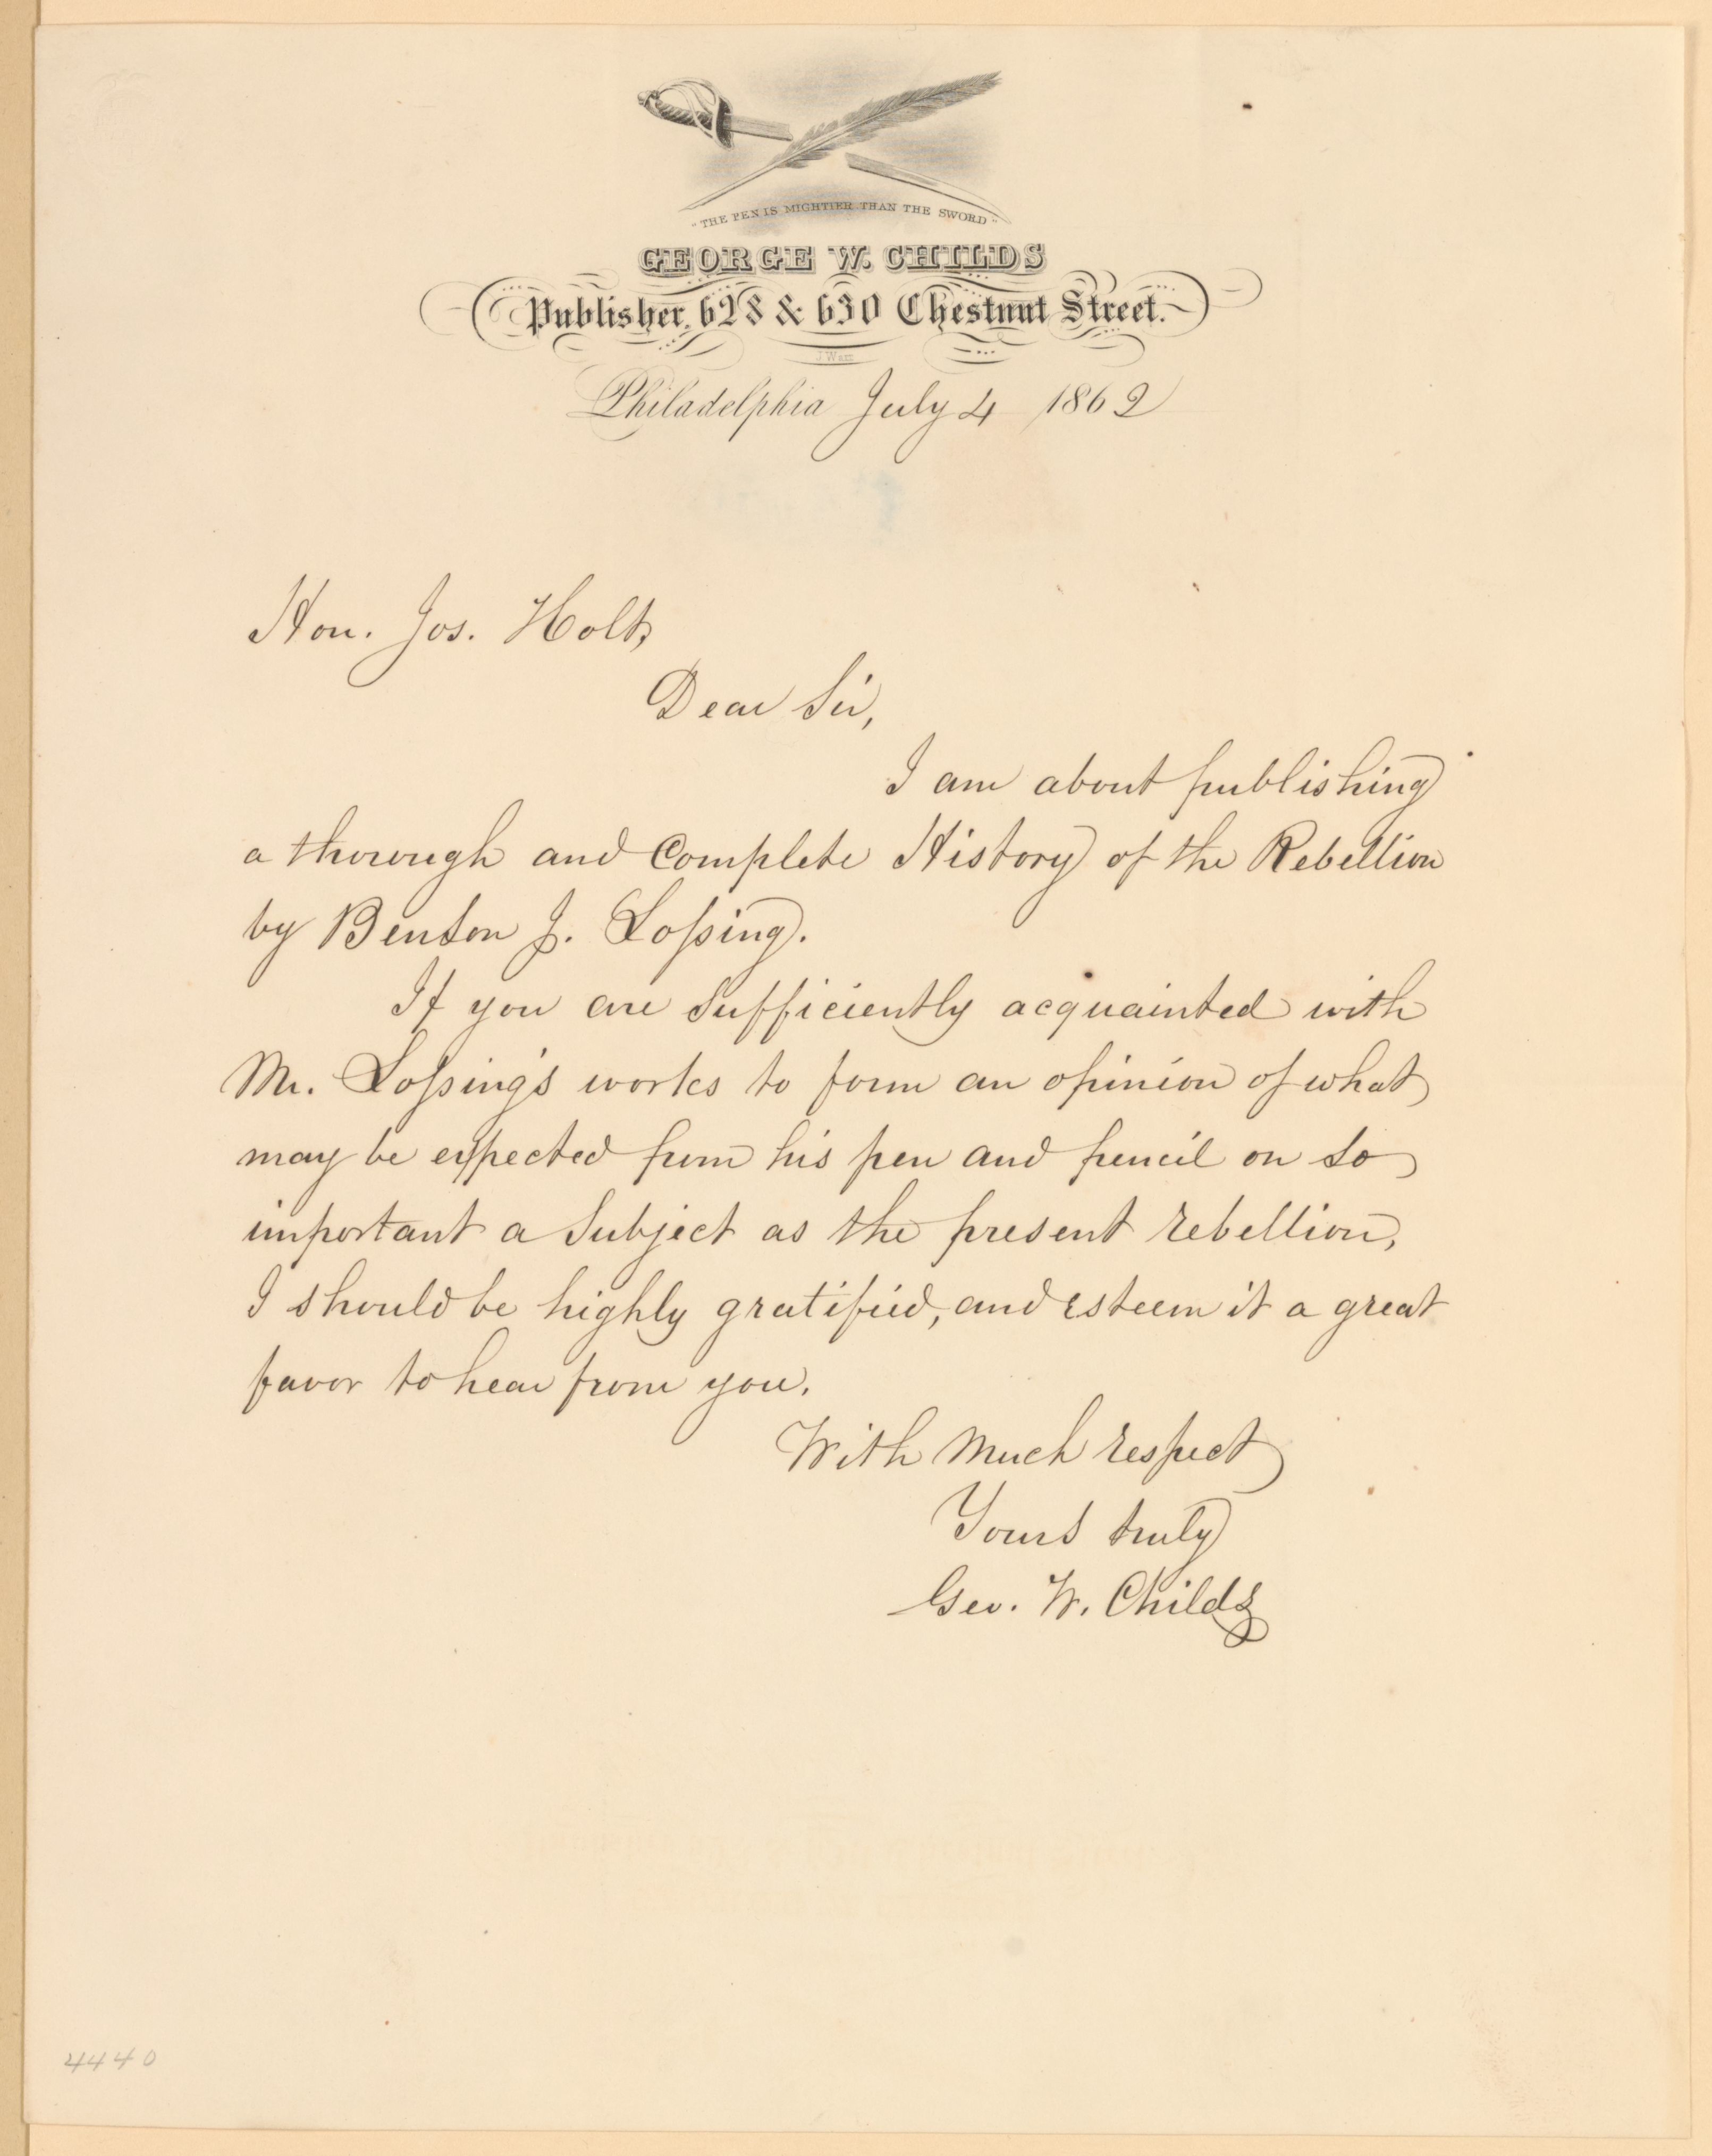 "THE PEN IS MIGHTIER THAN THE SWORD"
GEORGE W. CHILDS
Publisher, 628 & 630 Chestnut Street.
Philadelphia July 4 1862
Hon. Jos. Holt,
Dear Sir,
I am about publishing
a thorough and Complete History of the Rebellion
by Benson J. Loſsing.
If you are sufficiently acquainted with
Mr. Loſsing's works to form an opinion of what
may be expected from his pen and pencil on so
important a Subject as the present rebellion,
I should be highly gratified, and esteem it a great
favor to hear from you.
With Much respect
Yours truly
Geo. W. Childs
4440